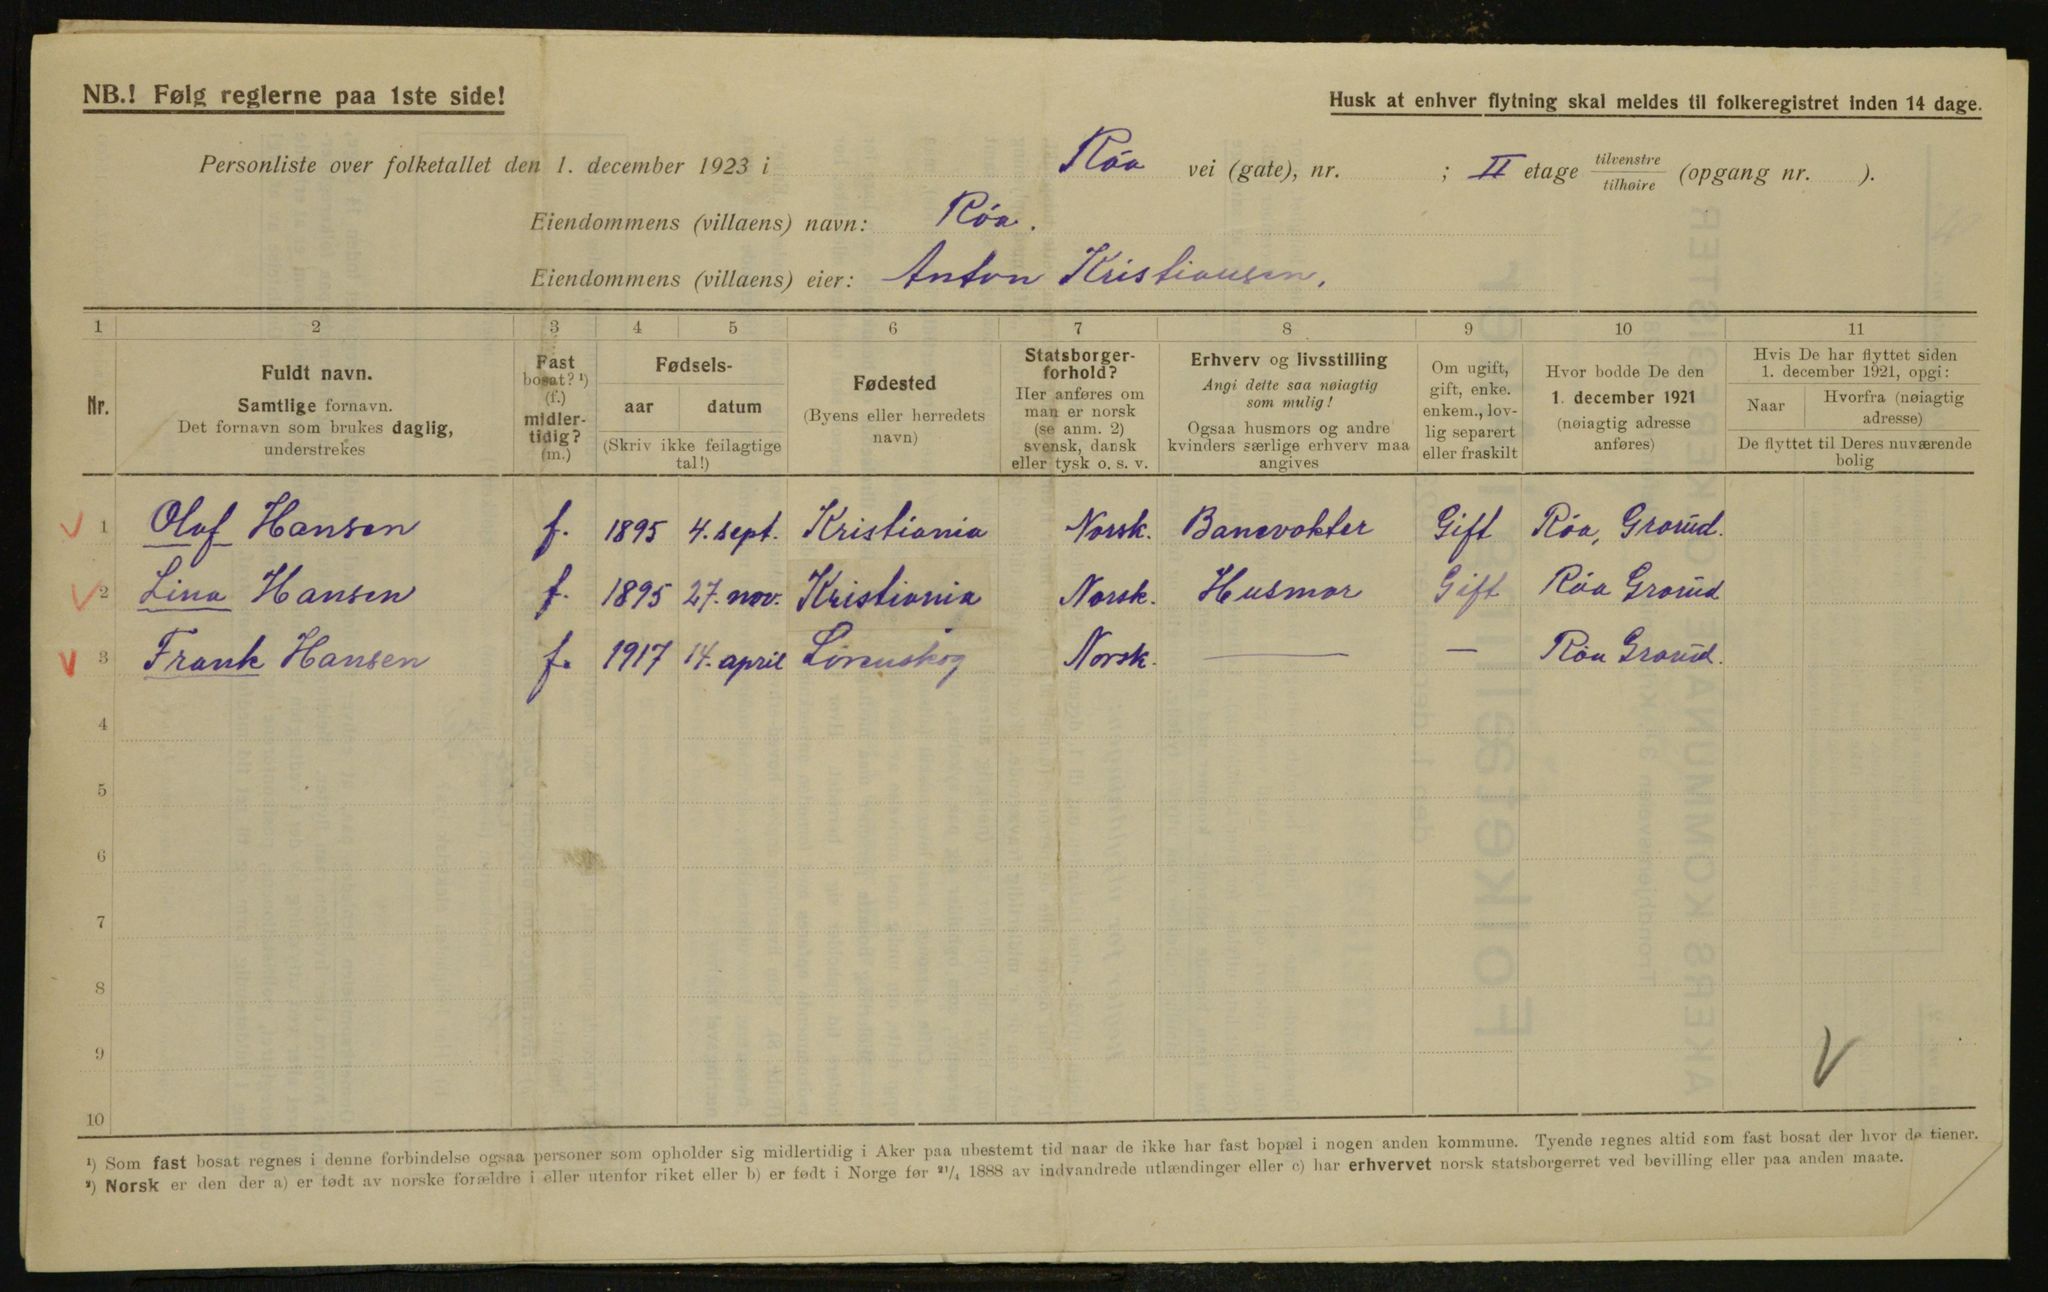 NB.! Følg reglerne paa 1ste side!
Husk at enhver flytning skal meldes til folkeregistret inden 14 dage.
Personliste over folketallet den 1. december 1923 i Røa vei (gate), nr. ; II etage tilvenstre/tilhøire (opgang nr. ).
Eiendommens (villaens) navn: Røa.
Eiendommens (villaens) eier: Anton Kristiansen,
1 2 3 4 5 6 7 8 9 10 11
Nr.
Fuldt navn.
Samtlige fornavn.
Det fornavn som brukes daglig,
understrekes
Fast
bosat? ¹)
(f.)
midler-
tidig?
(m.)
Fødsels-
aar datum
(Skriv ikke feilagtige
tal!)
Fødested
(Byens eller herredets
navn)
Statsborger-
forhold?
Her anføres om
man er norsk
(se anm. 2)
svensk, dansk
eller tysk o. s. v.
Erhverv og livsstilling
Angi dette saa nøiagtig
som mulig!
Ogsaa husmors og andre
kvinders særlige erhverv maa
angives
Om ugift,
gift, enke.
enkem., lov-
lig separert
eller fraskilt
Hvor bodde De den
1. december 1921
(nøiagtig adresse
anføres)
Hvis De har flyttet siden
1. december 1921, opgi:
Naar
Hvorfra (nøiagtig
adresse)
De flyttet til Deres nuværende
bolig
1 Olaf Hansen f. 1895 4. sept. Kristiania Norsk. Banevokter Gift Røa, Grorud.
2 Lina Hansen f. 1895 27. nov. Kristiania Norsk. Husmor Gift Røa Grorud
3 Frank Hansen f. 1917 14. april Lørenskog Norsk. — — Røa Grorud.
4
5
6
7
8
9
10
¹) Som fast bosat regnes i denne forbindelse ogsaa personer som opholder sig midlertidig i Aker paa ubestemt tid naar de ikke har fast bopæl i nogen anden kommune. Tyende regnes altid som fast bosat der hvor de tjener.
²) Norsk er den der a) er født av norske forældre i eller utenfor riket eller b) er født i Norge før ²¹/₄ 1888 av indvandrede utlændinger eller c) har erhvervet norsk statsborgerret ved bevilling eller paa anden maate.